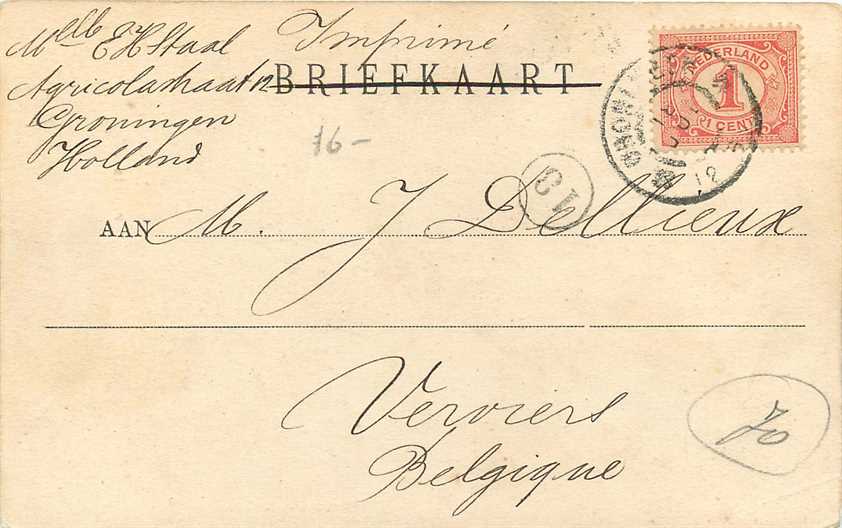 Melle E H Staal
Agricolastraat 12
Groningen
Holland
Imprimé
BRIEFKAART
NEDERLAND
1
CENT
16-
13
12
AAN M. J Dellieux
Verviers
Belgique
70